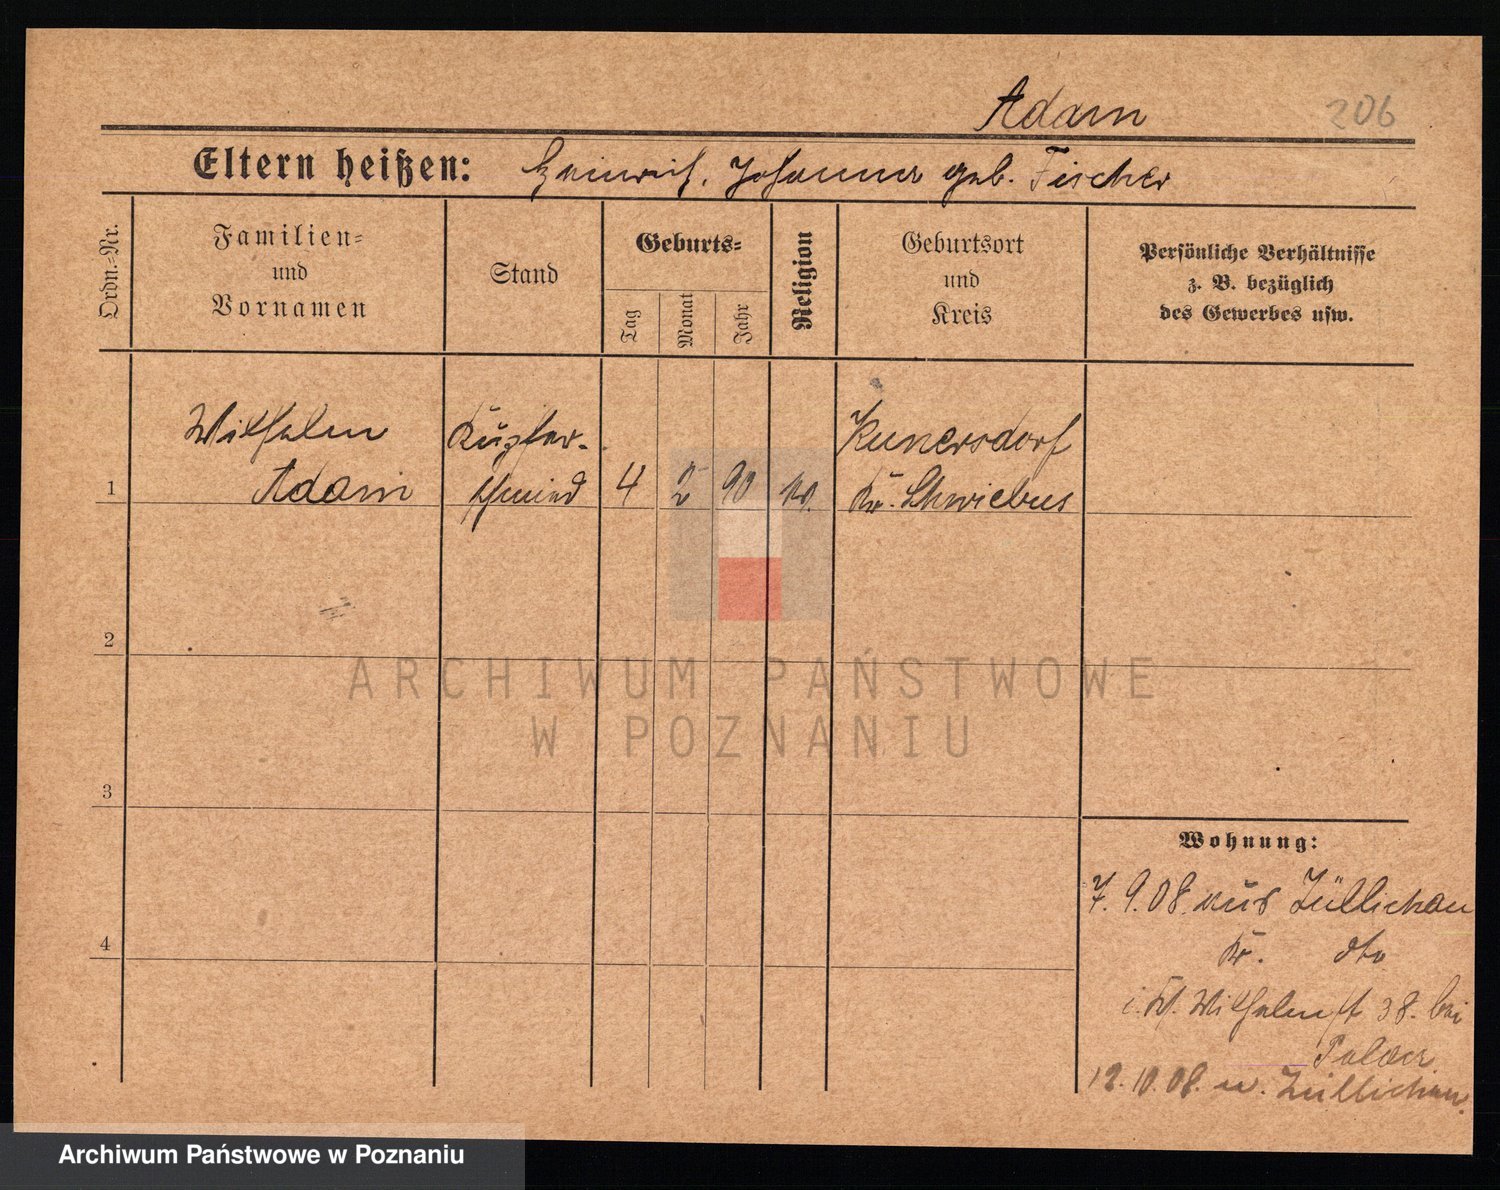 Adam 206
Eltern heißen: Heinrich. Johanna geb. Fischer
Ordn.=Nr.
Familien=
und
Vornamen
Stand
Geburts=
Tag
Monat
Jahr
Religion
Geburtsort
und
Kreis
Persönliche Verhältnisse
z. B. bezüglich
des Gewerbes usw.
Wilhelm Kupfer- Kunersdorf
1 Adam schmied 4 2 90 Kr. Schwiebus
2
3
4
Wohnung:
7. 9. 08. aus Züllichau
Kr. dto
i. W. Wilhelmst 38. bei
12. 10. 08. n. Züllichau.
ARCHIWUM PAŃSTWOWE
W POZNANIU
Archiwum Państwowe w Poznaniu